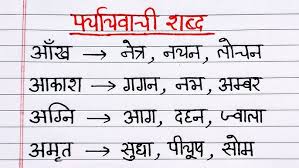 पर्यायवाची शब्द
आँख → नेत्र, नयन, लोचन
आकाश → गगन, नभ, अम्बर
अग्नि → आग, दहन, ज्वाला
अमृत → सुधा, पीयूष, सोम